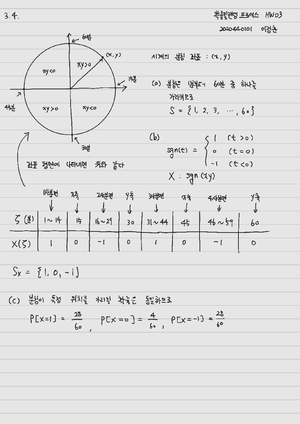 3.4.
확률랜덤프로세스 HW03
60분
(x, y)
xy<0
xy>0
15분
45분
xy>0
xy<0
30분
시계의 분침 좌표 : (x, y)
(a) 분침은 1분부터 60분 중 하나를
가리키므로
S = {1, 2, 3, ⋯, 60}
(b)
sgn(t) = { 1 (t>0)
0 (t=0)
-1 (t<0)
X : sgn(xy)
좌표 평면에 나타내면 위와 같다
1사분면 x축 4사분면 y축 3사분면 x축 2사분면 y축
ζ (분) 1~14 15 16~29 30 31~44 45 46~59 60
X(ζ) 1 0 -1 0 1 0 -1 0
Sx = {1, 0, -1}
(c) 분침이 특정 위치를 가리킬 확률은 동일하므로
P[X=1] = 28/60 , P[X=0] = 4/60 , P[X=-1] = 28/60